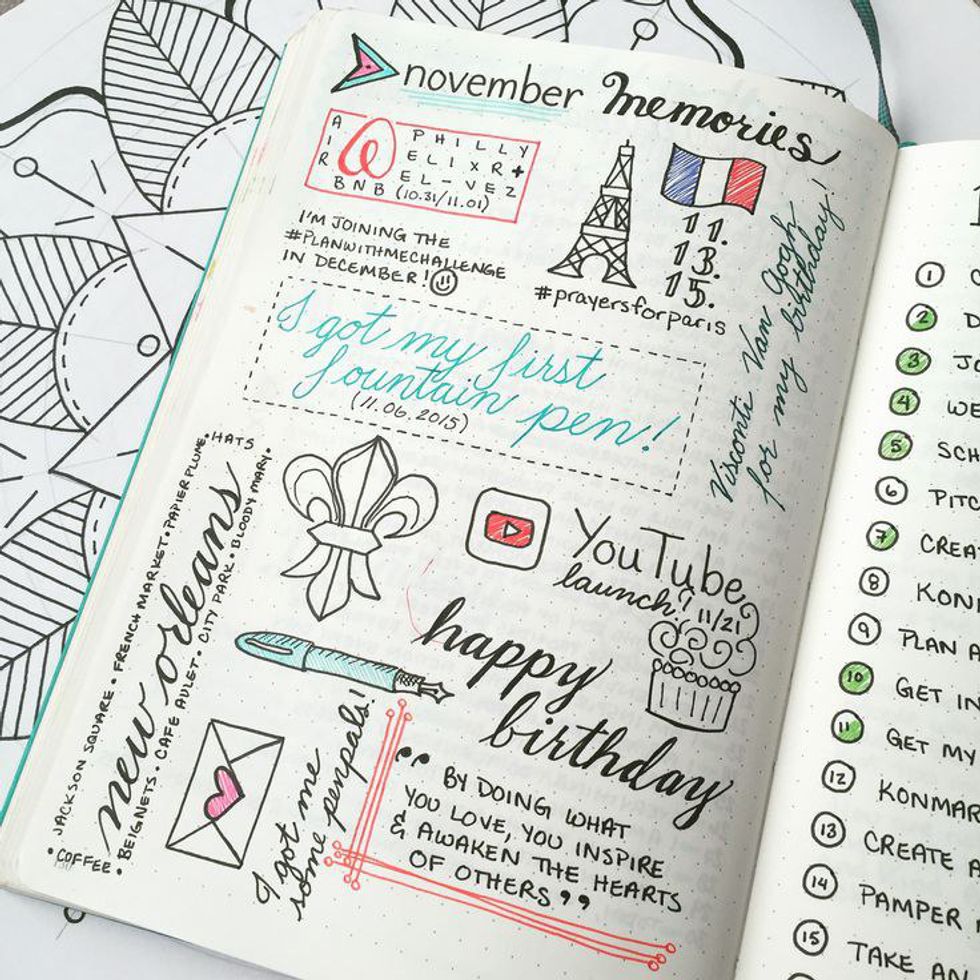 november memories
AIR BNB
PHILLY
ELIXR +
EL-VEZ
(10.31/11.01)
I'M JOINING THE
#PLANWITHMECHALLENGE
IN DECEMBER!
11.
13.
15.
#prayersforparis
Visconti Van Gogh
for my birthday!
I got my first
fountain pen!
(11.06.2015)
HATS
JACKSON SQUARE • FRENCH MARKET • PAPIER PLUME •
new orleans
BEIGNETS • CAFE AULET • CITY PARK • BLOODY MARY •
• COFFEE •
YouTube
launch? 11/21
happy
birthday
I got me
some penpals!
“ BY DOING WHAT
YOU LOVE, YOU INSPIRE
& AWAKEN THE HEARTS
OF OTHERS ”
1
2
3
4 WE
5 SCH
6 PITC
7 CREA
8 KON
9 PLAN A
10 GET IN
11 GET MY
12 KONMAR
13 CREATE A
14 PAMPER
15 TAKE AN